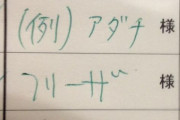 (例) アダチ 様
フリーザ 様